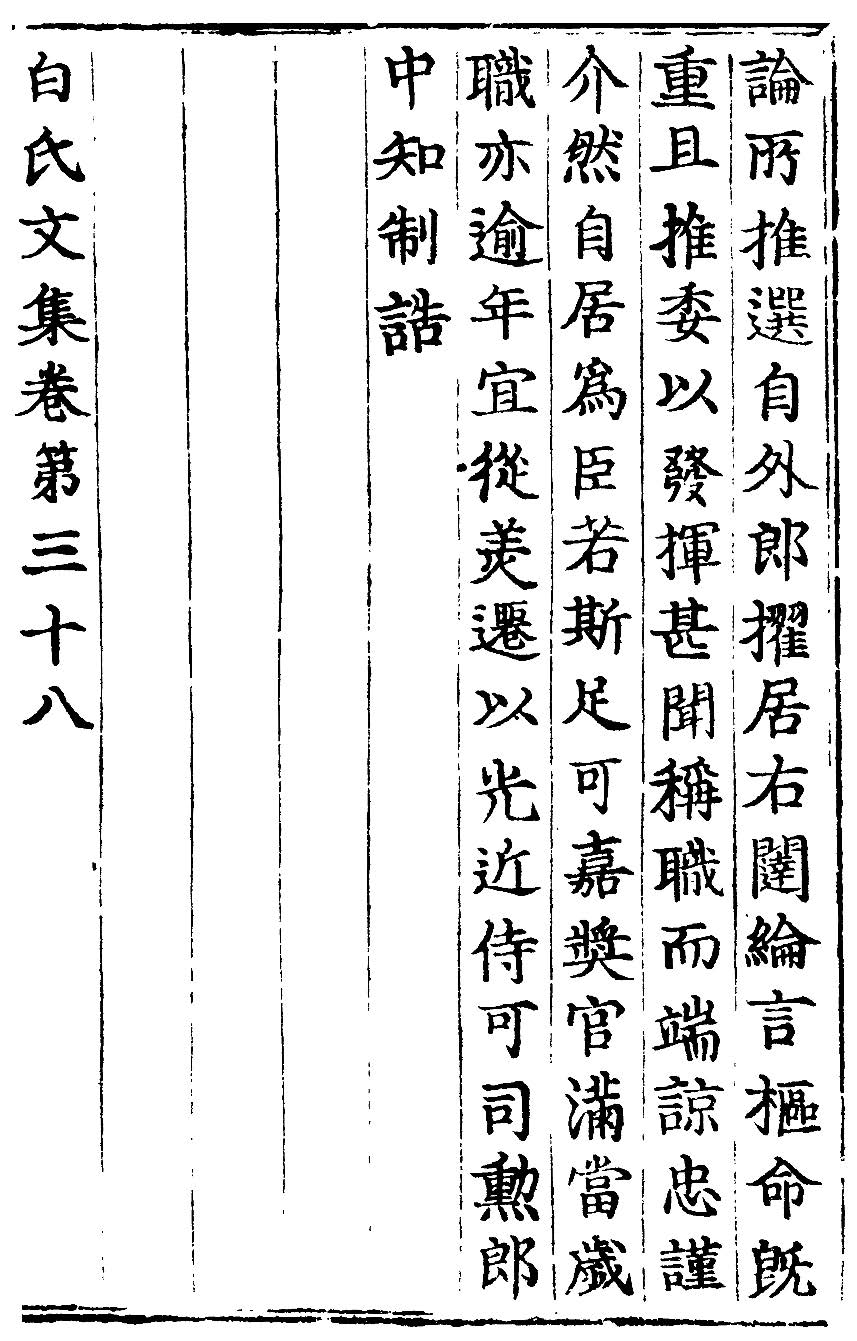 論所推選自外郎擢居右闥綸言樞命旣
重且推委以發揮甚聞稱職而端諒忠謹
介然自居爲臣若斯足可嘉奬官滿當歲
職亦逾年宜從羙遷以光近侍可司勲郎
中知制誥
白氏文集卷第三十八